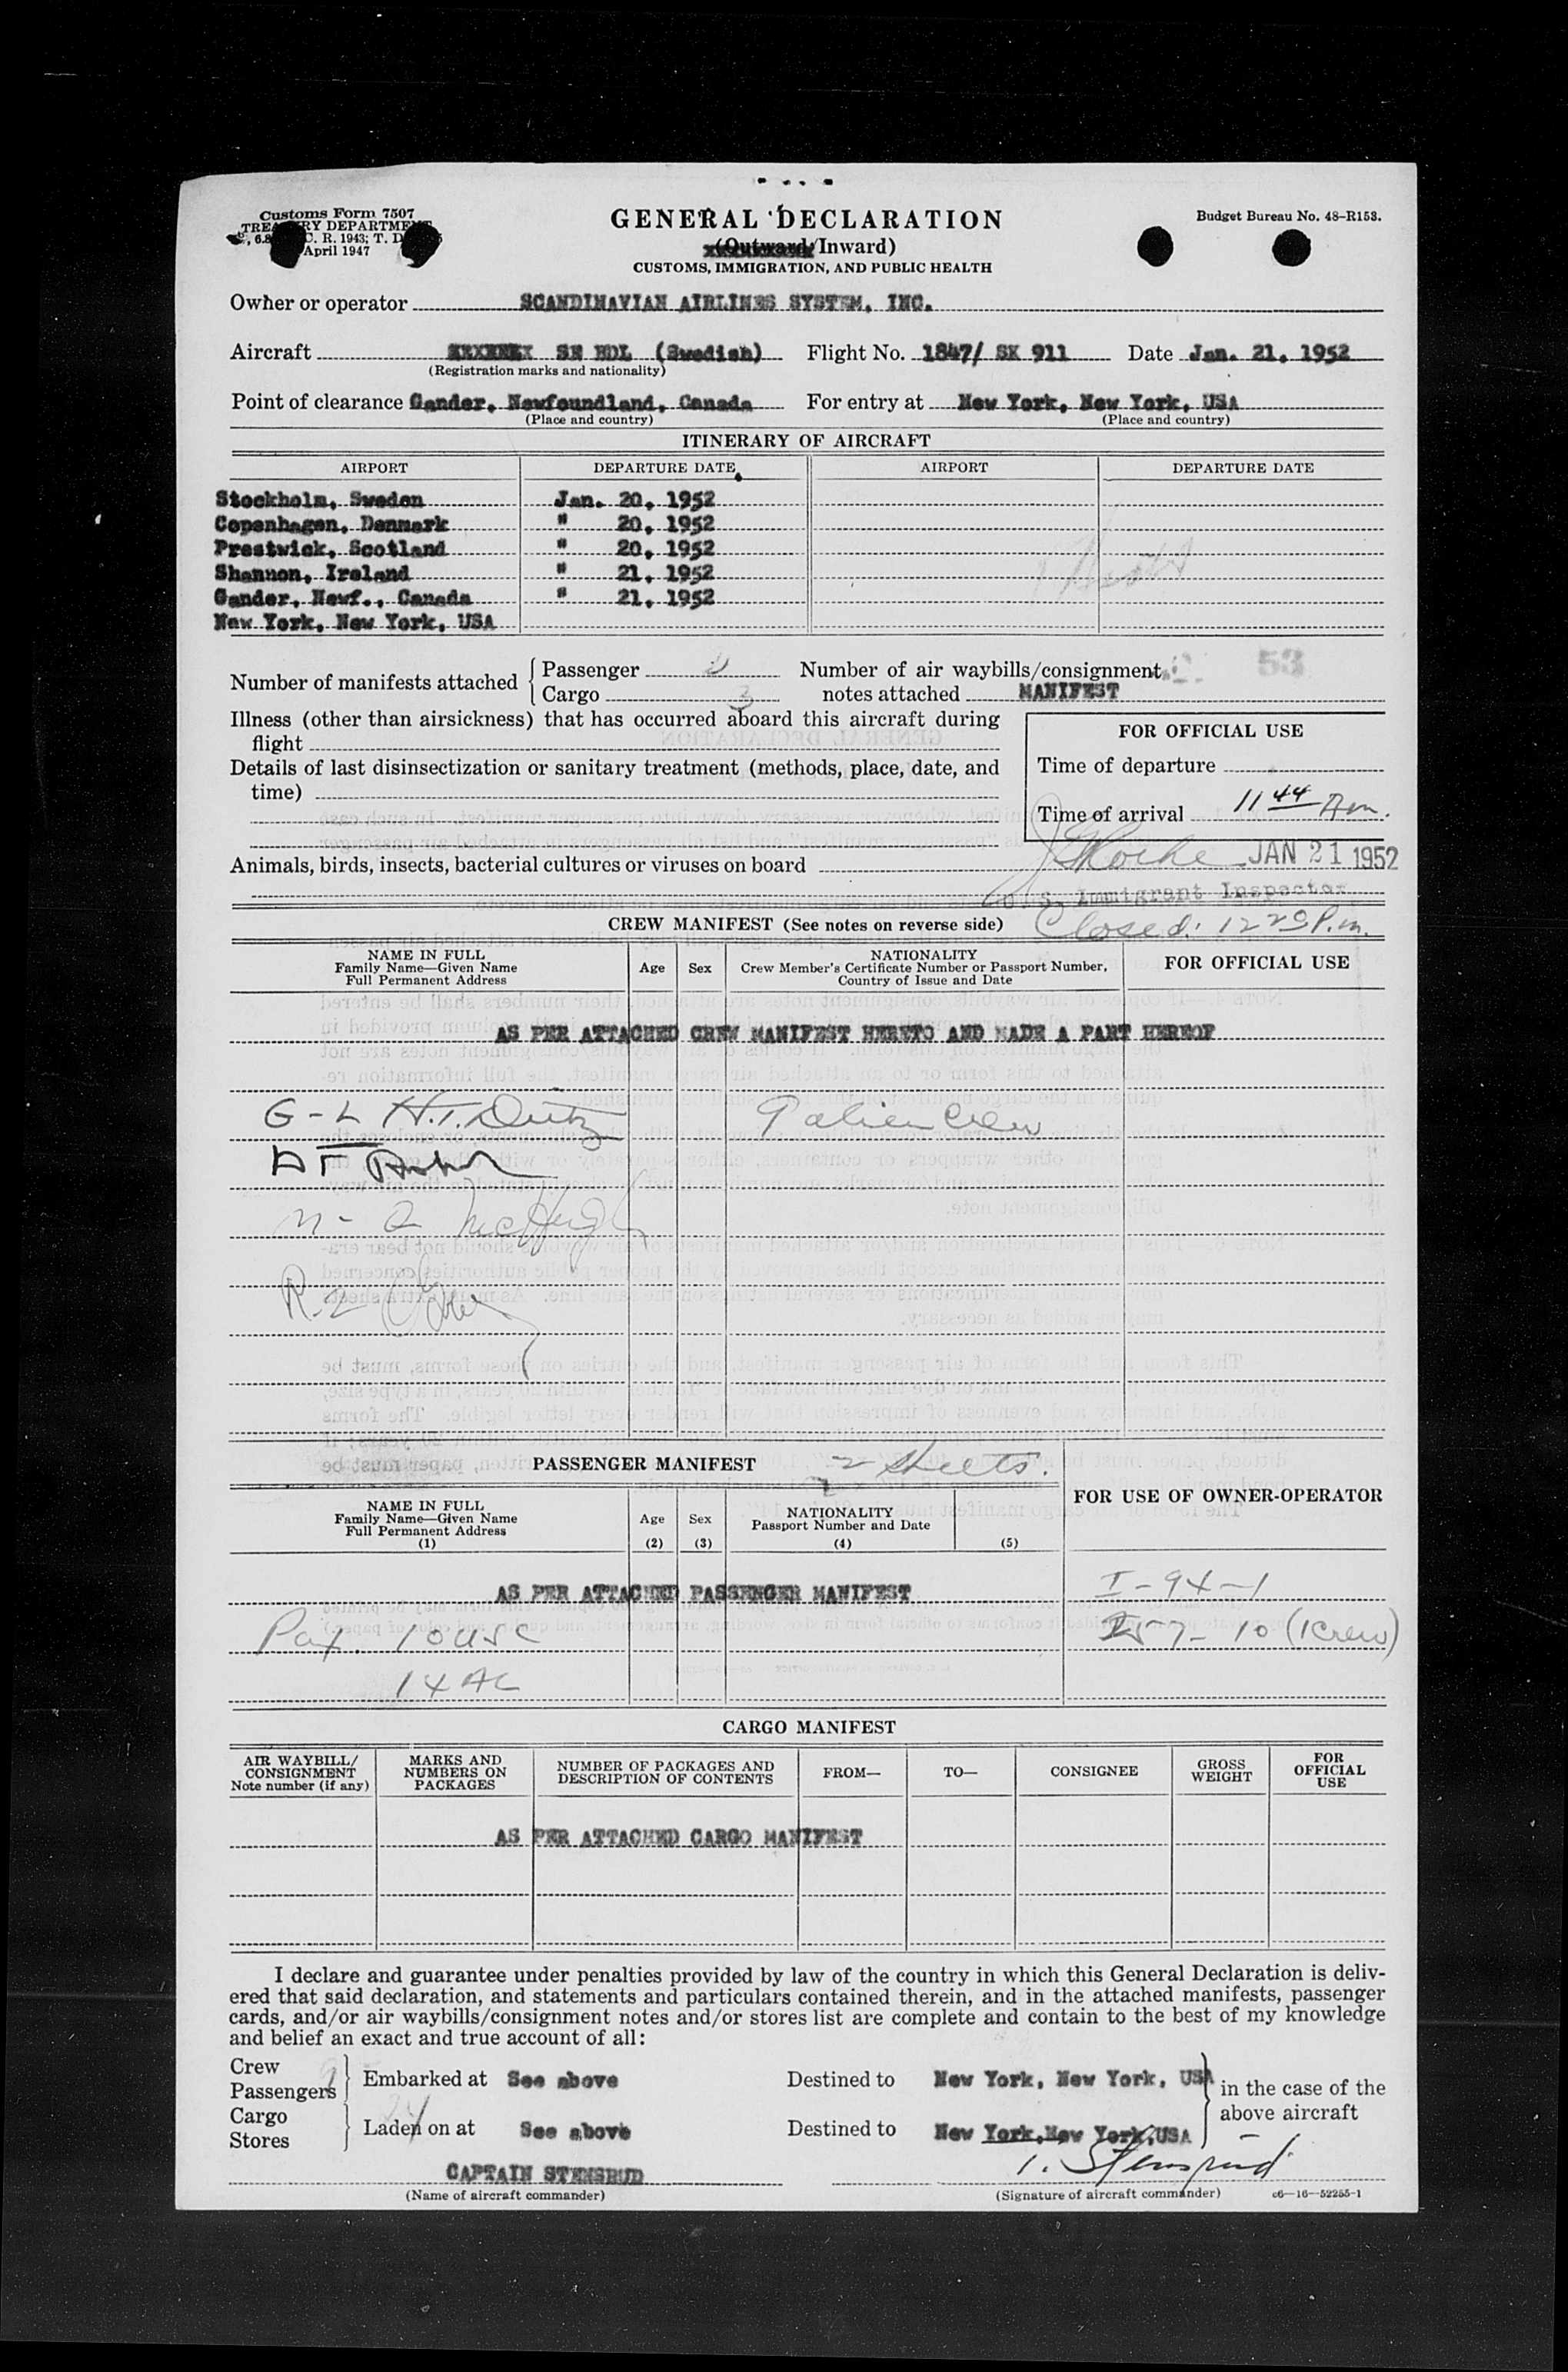 Customs Form 7507
TREASURY DEPARTMENT
C. R. 1943; T. D.
April 1947
GENERAL DECLARATION
(Outward/Inward)
CUSTOMS, IMMIGRATION, AND PUBLIC HEALTH
Budget Bureau No. 48-R153.
Owner or operator SCANDINAVIAN AIRLINES SYSTEM, INC.
Aircraft SE BDL (Swedish) Flight No. 1847/ SK 911 Date Jan. 21, 1952
(Registration marks and nationality)
Point of clearance Gander, Newfoundland, Canada For entry at New York, New York, USA
(Place and country) (Place and country)
ITINERARY OF AIRCRAFT
AIRPORT DEPARTURE DATE AIRPORT DEPARTURE DATE
Stockholm, Sweden Jan. 20, 1952
Copenhagen, Denmark " 20, 1952
Prestwick, Scotland " 20, 1952
Shannon, Ireland " 21, 1952
Gander, Newf., Canada " 21, 1952
New York, New York, USA
Number of manifests attached { Passenger Number of air waybills/consignment 53
Cargo 3 notes attached MANIFEST
Illness (other than airsickness) that has occurred aboard this aircraft during
flight
FOR OFFICIAL USE
Details of last disinsectization or sanitary treatment (methods, place, date, and
time)
Time of departure
Time of arrival 11 44 Am.
Animals, birds, insects, bacterial cultures or viruses on board
JAN 21 1952
U. S. Immigrant Inspector
CREW MANIFEST (See notes on reverse side) Closed: 12 20 P.m.
NAME IN FULL
Family Name—Given Name
Full Permanent Address
Age Sex
NATIONALITY
Crew Member's Certificate Number or Passport Number,
Country of Issue and Date
FOR OFFICIAL USE
AS PER ATTACHED CREW MANIFEST HERETO AND MADE A PART HEREOF
G - L H.T. 9 alien crew
N - Q McHugh
R-Z
PASSENGER MANIFEST 2 sheets.
NAME IN FULL
Family Name—Given Name
Full Permanent Address
(1)
Age
(2)
Sex
(3)
NATIONALITY
Passport Number and Date
(4) (5)
FOR USE OF OWNER-OPERATOR
AS PER ATTACHED PASSENGER MANIFEST I-94-1
Pax. 10 USC I57- 10 (1crew)
14 AL
CARGO MANIFEST
AIR WAYBILL/
CONSIGNMENT
Note number (if any)
MARKS AND
NUMBERS ON
PACKAGES
NUMBER OF PACKAGES AND
DESCRIPTION OF CONTENTS
FROM—
TO—
CONSIGNEE
GROSS
WEIGHT
FOR
OFFICIAL
USE
AS PER ATTACHED CARGO MANIFEST
I declare and guarantee under penalties provided by law of the country in which this General Declaration is deliv-
ered that said declaration, and statements and particulars contained therein, and in the attached manifests, passenger
cards, and/or air waybills/consignment notes and/or stores list are complete and contain to the best of my knowledge
and belief an exact and true account of all:
Crew 9
Passengers 24
Embarked at See above Destined to New York, New York, USA
in the case of the
above aircraft
Cargo
Stores
Laden on at See above Destined to New York, New York, USA
CAPTAIN STENSRUD I. Stensrud
(Name of aircraft commander) (Signature of aircraft commander) c6—16—52255-1